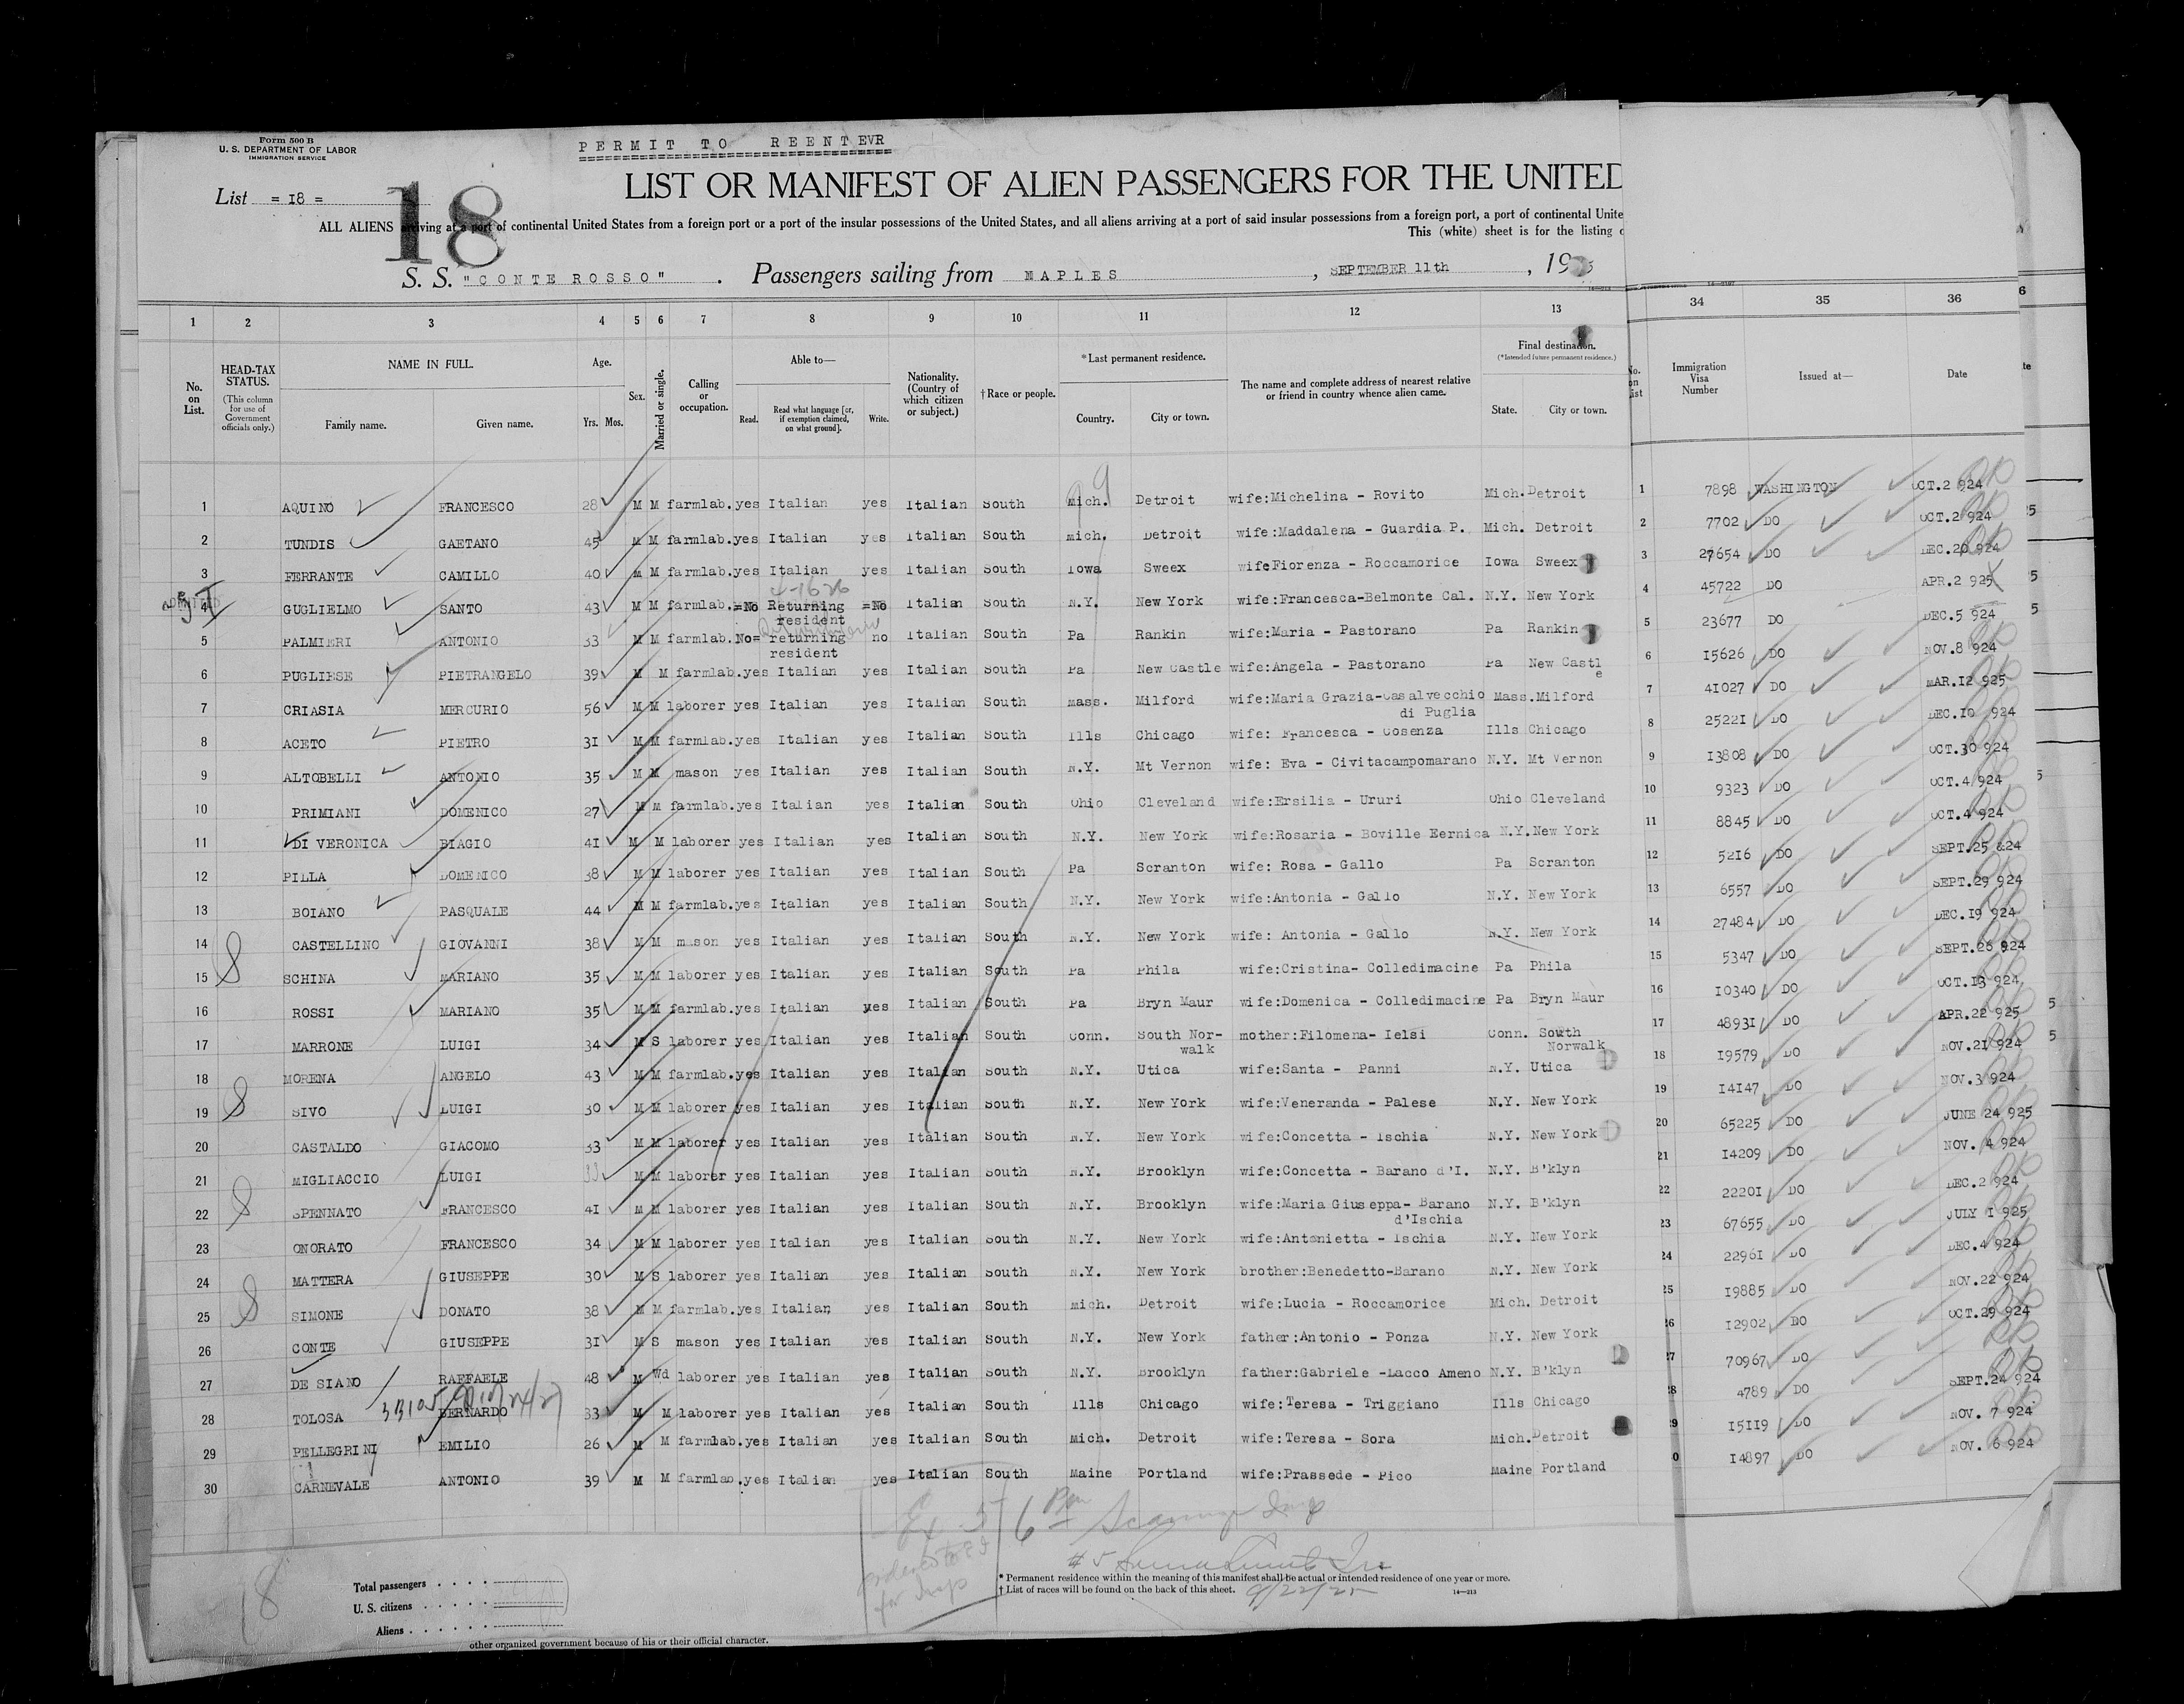 Form 500 B
U. S. DEPARTMENT OF LABOR
IMMIGRATION SERVICE
PERMIT TO REENTEVR
List = 18 =
18
LIST OR MANIFEST OF ALIEN PASSENGERS FOR THE UNITED
ALL ALIENS arriving at a port of continental United States from a foreign port or a port of the insular possessions of the United States, and all aliens arriving at a port of said insular possessions from a foreign port, a port of continental Unite
This (white) sheet is for the listing
S. S. "CONTE ROSSO". Passengers sailing from MAPLES, SEPTEMBER 11th, 19
1 2 3 4 5 6 7 8 9 10 11 12 13 34 35 36
No. on List. HEAD-TAX STATUS. (This column for use of Government officials only.) NAME IN FULL. Family name. Given name. Age. Yrs. Mos. Sex. Married or single. Calling or occupation. Able to— Read. Read what language [or, if exemption claimed, on what ground]. Write. Nationality. (Country of which citizen or subject.) †Race or people. *Last permanent residence. Country. City or town. The name and complete address of nearest relative or friend in country whence alien came. Final destination. (*Intended future permanent residence.) State. City or town. No. on List Immigration Visa Number Issued at— Date
1 AQUINO FRANCESCO 28 M M farmlab. yes Italian yes Italian South Mich. Detroit wife:Michelina - Rovito Mich. Detroit 1 7898 WASHINGTON OCT.2 924
2 TUNDIS GAETANO 45 M M farmlab. yes Italian yes Italian South Mich. Detroit wife:Maddalena - Guardia P. Mich. Detroit 2 7702 DO OCT.2 924
3 FERRANTE CAMILLO 40 M M farmlab. yes Italian yes Italian South Iowa Sweex wifeFiorenza - Roccamorice Iowa Sweex 3 27654 DO DEC.20 924
4 GUGLIELMO SANTO 43 M M farmlab. =No Returning resident =No Italian South N.Y. New York wife:Francesca-Belmonte Cal. N.Y. New York 4 45722 DO APR.2 925
5 PALMIERI ANTONIO 33 M M farmlab. No= returning resident no Italian South Pa Rankin wife:Maria - Pastorano Pa Rankin 5 23677 DO DEC.5 924
6 PUGLIESE PIETRANGELO 39 M M farmlab. yes Italian yes Italian South Pa New Castle wife:Angela - Pastorano Pa New Castle 6 15626 DO NOV.8 924
7 CRIASIA MERCURIO 56 M M laborer yes Italian yes Italian South Mass. Milford wife:Maria Grazia-Casalvecchio di Puglia Mass. Milford 7 41027 DO MAR.12 925
8 ACETO PIETRO 31 M M farmlab. yes Italian yes Italian South Ills Chicago wife: Francesca - Cosenza Ills Chicago 8 25221 DO DEC.10 924
9 ALTOBELLI ANTONIO 35 M M mason yes Italian yes Italian South N.Y. Mt Vernon wife: Eva - Civitacampomarano N.Y. Mt Vernon 9 13808 DO OCT.30 924
10 PRIMIANI DOMENICO 27 M M farmlab. yes Italian yes Italian South Ohio Cleveland wife:Ersilia - Ururi Ohio Cleveland 10 9323 DO OCT.4 924
11 DI VERONICA BIAGIO 41 M M laborer yes Italian yes Italian South N.Y. New York wife:Rosaria - Boville Eernica N.Y. New York 11 8845 DO OCT.4 924
12 PILLA DOMENICO 38 M M laborer yes Italian yes Italian South Pa Scranton wife: Rosa - Gallo Pa Scranton 12 5216 DO SEPT.25 924
13 BOIANO PASQUALE 44 M M farmlab. yes Italian yes Italian South N.Y. New York wife:Antonia - Gallo N.Y. New York 13 6557 DO SEPT.29 924
14 CASTELLINO GIOVANNI 38 M M mason yes Italian yes Italian South N.Y. New York wife: Antonia - Gallo N.Y. New York 14 27484 DO DEC.19 924
15 SCHINA MARIANO 35 M M laborer yes Italian yes Italian South Pa Phila wife:Cristina- Colledimacine Pa Phila 15 5347 DO SEPT.26 924
16 ROSSI MARIANO 35 M M farmlab. yes Italian yes Italian South Pa Bryn Maur wife:Domenica - Colledimacine Pa Bryn Maur 16 10340 DO OCT.13 924
17 MARRONE LUIGI 34 M S laborer yes Italian yes Italian South Conn. South Nor-walk mother:Filomena- Ielsi Conn. South Norwalk 17 48931 DO APR.22 925
18 MORENA ANGELO 43 M M farmlab. yes Italian yes Italian South N.Y. Utica wife:Santa - Panni N.Y. Utica 18 19579 DO NOV.21 924
19 SIVO LUIGI 30 M M laborer yes Italian yes Italian South N.Y. New York wife:Veneranda - Palese N.Y. New York 19 14147 DO NOV.3 924
20 CASTALDO GIACOMO 33 M M laborer yes Italian yes Italian South N.Y. New York wife:Concetta - Ischia N.Y. New York 20 65225 DO JUNE 24 925
21 MIGLIACCIO LUIGI M M laborer yes Italian yes Italian South N.Y. Brooklyn wife:Concetta - Barano d'I. N.Y. B'klyn 21 14209 DO NOV. 4 924
22 SPENNATO FRANCESCO 41 M M laborer yes Italian yes Italian South N.Y. Brooklyn wife:Maria Giuseppa- Barano d'Ischia N.Y. B'klyn 22 22201 DO DEC.2 924
23 ONORATO FRANCESCO 34 M M laborer yes Italian yes Italian South N.Y. New York wife:Antonietta - Ischia N.Y. New York 23 67655 DO JULY 1 925
24 MATTERA GIUSEPPE 30 M S laborer yes Italian yes Italian South N.Y. New York brother:Benedetto-Barano N.Y. New York 24 22961 DO DEC.4 924
25 SIMONE DONATO 38 M M farmlab. yes Italian yes Italian South Mich. Detroit wife:Lucia - Roccamorice Mich. Detroit 25 19885 DO NOV.22 924
26 CONTE GIUSEPPE 31 M S mason yes Italian yes Italian South N.Y. New York father:Antonio - Ponza N.Y. New York 26 12902 DO OCT.29 924
27 DE SIANO RAFFAELE 48 M Wd laborer yes Italian yes Italian South N.Y. Brooklyn father:Gabriele -Lacco Ameno N.Y. B'klyn 27 70967 DO
28 TOLOSA BERNARDO 33 M M laborer yes Italian yes Italian South Ills Chicago wife:Teresa - Triggiano Ills Chicago 28 4789 DO SEPT.24 924
29 PELLEGRINI EMILIO 26 M M farmlab. yes Italian yes Italian South Mich. Detroit wife:Teresa - Sora Mich. Detroit 29 15119 DO NOV. 7 924
30 CARNEVALE ANTONIO 39 M M farmlab. yes Italian yes Italian South Maine Portland wife:Prassede - Pico Maine Portland 0 14897 DO NOV. 6 924
18
Total passengers
U. S. citizens
Aliens
* Permanent residence within the meaning of this manifest shall be actual or intended residence of one year or more.
† List of races will be found on the back of this sheet.
9/22/25
14—213
other organized government because of his or their official character.